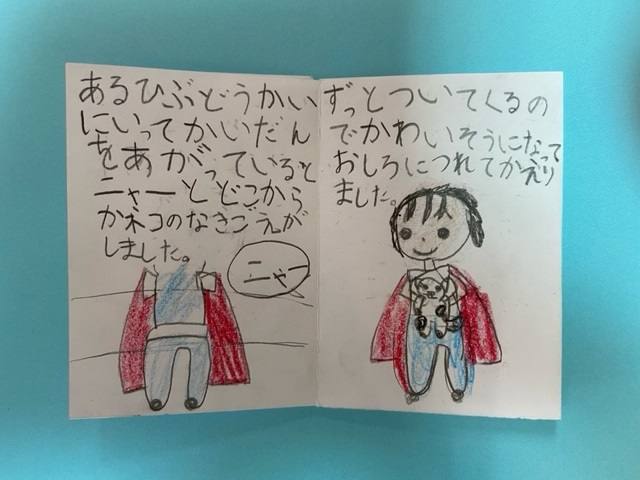 あるひぶどうかい
にいってかいだん
をあがっていると
ニャーとどこから
かネコのなきごえが
しました。
ニャー
ずっとついてくるの
でかわいそうになって
おしろにつれてかえり
ました。